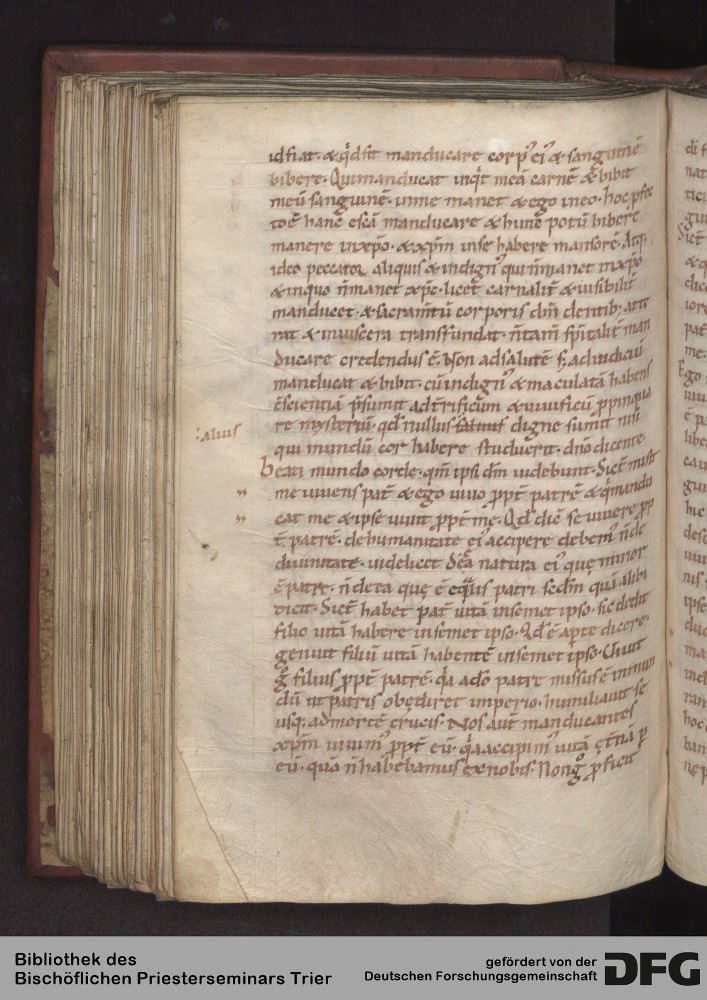 id fiat · & qd sit manducare corp' ei' & sanguinē
bibere · Qui manducat inqt meā carnē & bibit
meū sanguinē · in me manet & ego in eo · hoc
hanc escā manducare & hunc potū bibere
manere in xp̄o · & xp̄m in se habere mansorē · Atq;
ideo peccator aliquis & indign' qui n̄ manet in xp̄o
& in quo n̄ manet xp̄c · licet carnalit̄ & uisibilit̄
manducet · & sacram̄tū corporis dn̄i dentib; atte
rat & in uiscera transfundat · n̄ tam̄ sp̄italit̄ man
ducare credendus ē · Non ad salutē s; ad iudiciū
manducat & bibit · cū indign' & maculatā habens
c̄scientiā p̄sumit ad t̄rificum & uiuificū ppinqua
re mysteriū · qd nullus digne sumit nisi
: alius
qui mundū cor habere studuerit · dn̄o dicente ·
Beati mundo corde · qm̄ ipsi dm̄ uidebunt · Sic̄ misit
me uiuens pat̄ & ego uiuo ppt̄ patrē & q̄ mandu
cat me & ipse uiuit ppt̄ me · Qd dic̄ se uiuere pp
t̄ patrē · de humanitate ei' accipere debem' n̄ de
diuinitate · uidelicet de ea natura ei' quę minor
ē patre · n̄ de ea quę ē eq̄lis patri scdm̄ quā alibi
dicit · Sic̄ habet pat̄ uitā in semet ipso · sic dedit
filio uitā habere in semet ipso · Qd ē apte dicere ·
genuit filiū uitā habentē in semet ipso · Uiuit
g° filius ppt̄ patrē · q̄a a do patre missus ē in mun
dū ut patris obędiret imperio · humiliauit se
usq; ad mortē crucis · Nos aut̄ manducantes
xp̄m uiuim' ppt̄ eū · q̄a accipim' uitā ęt̄nā p
eū · quā n̄ habebamus ex nobis · Non g° pficit
Bibliothek des
Bischöflichen Priesterseminars Trier
gefördert von der
Deutschen Forschungsgemeinschaft
DFG